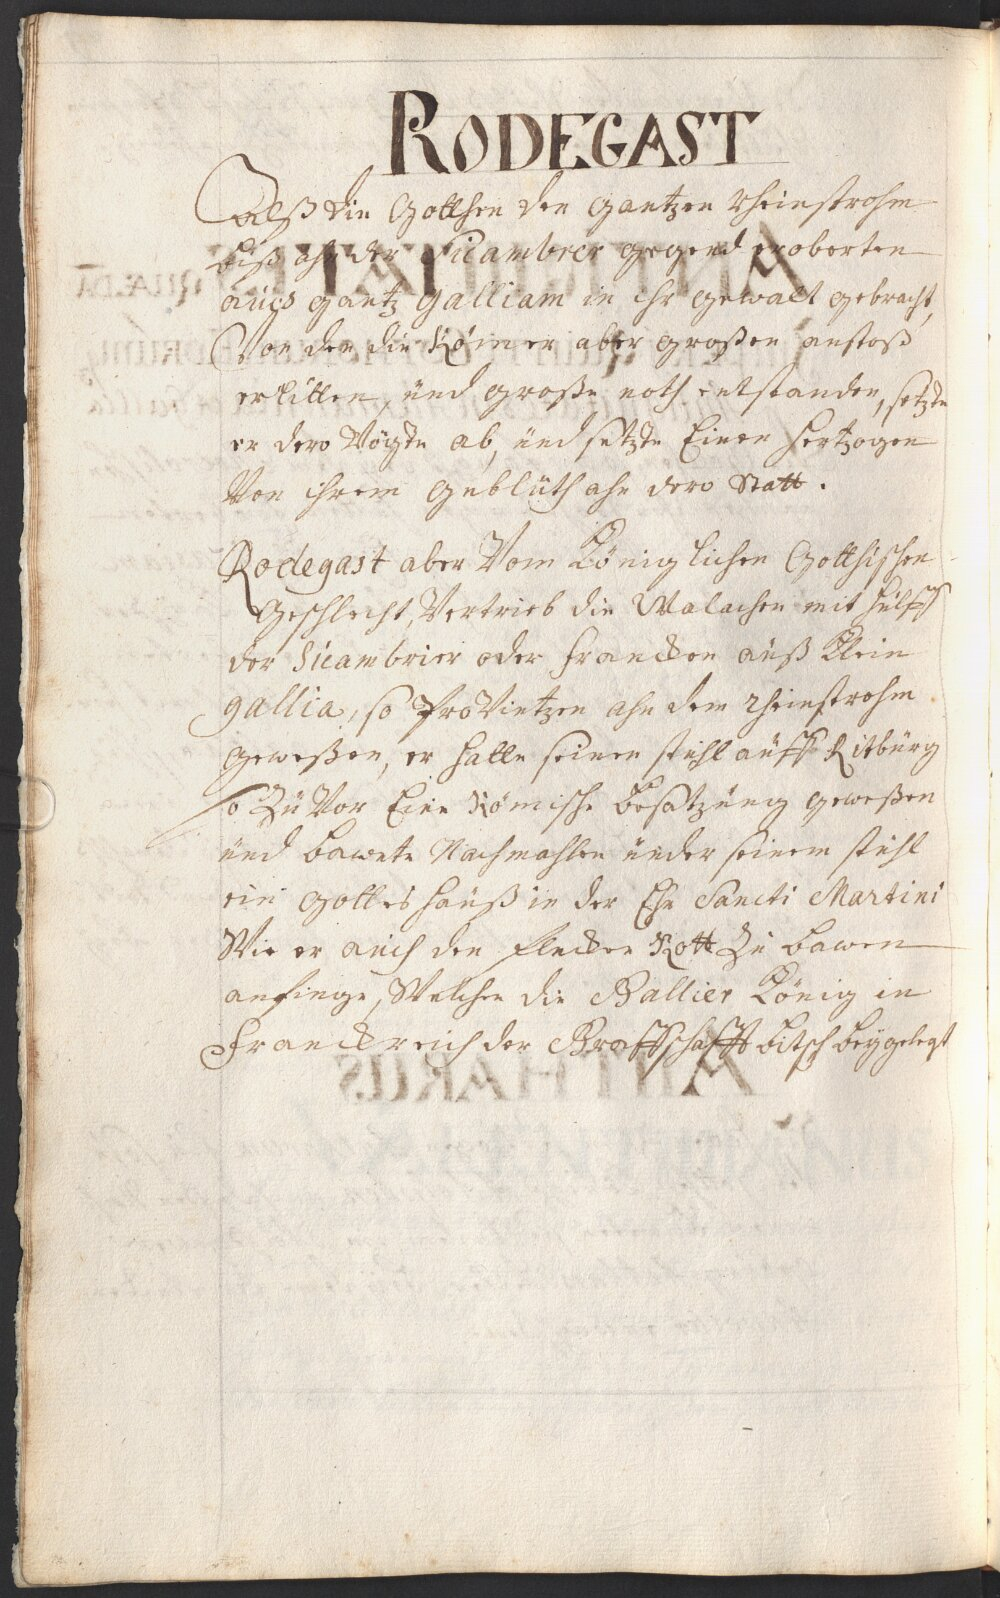 RODEGAST
Alß die Gotthen den gantzen rheinstrohm
biß ahn der Sicambrer gegend eroberten
auch gantz Galliam in ihr gewalt gebracht,
Von den die Römer aber großen anstoß
erlitten, und große noth entstanden, setzte
er dero Vögte ab, und setzte Einen hertzogen
Von ihrem geblüth ahn dero Statt.
Rodegast aber Vom Königlichen Gotthischen
geschlecht, Vertrieb die Walachen mit hülff
der Sicambrier oder francken auß Klein
gallia, so ProVintzen ahn dem rheinstrohm
geweßen, er hatte seinen stuhl auff Ritburg
so Zu Vor Eine Römische besatzung geweßen
und bawete Nachmahlen under seinem stuhl
ein gottes hauß in der Ehr Sancti Martini
Wie er auch den flecken Rott Zu bawen
anfinge, Welchen die Gallier König in
franckreich der Graffschafft bitsch beygelegt